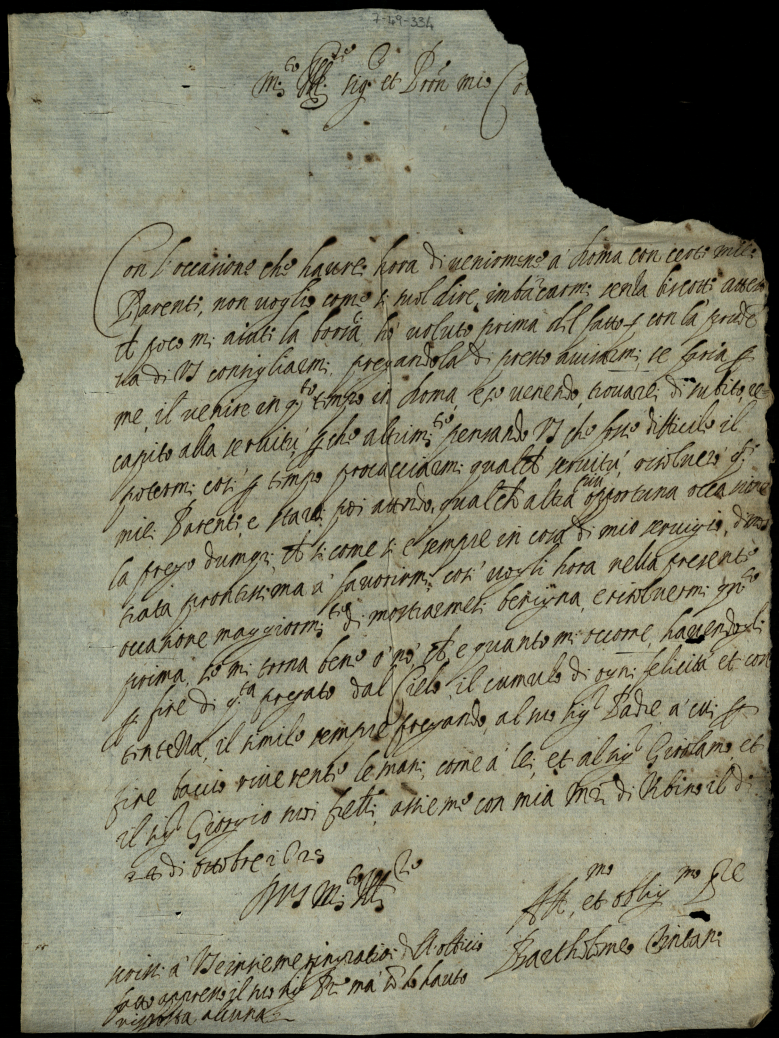 7-49-334
m.to Ill.re sig.r et Pron mio Co
Con l'occasione che haurei hora di venirmene à Roma con certi miei
Parenti, non voglio come si suol dire, imbarcarmi senza biscotti
poco mi aiuti la borsa, hò voluto prima del fatto con la prude
za di VS consigliarmi, pregandola di presto avisarmi, se saria p
me, il venire in q.to tempo in Roma, e se venendo, trovarei di subito, re
capito alla servitù, p che altrim.te pensando VS che fosse difficile il
potermi così p tempo procacciarmi qualche servitù, 
miei Parenti, e starò poi attendendo qualche altra più opportuna occasione
la prego dunq; che si come si è sempre in cosa di mio servigio, dimos
trata prontissima à favorirmi, così vogli hora nella presente
occasione maggiorm.te di mostrarmesi benigna, e risolvermi
prima, se mi torna bene ò nò, che è quanto mi occorre, havendogli
p fine di q.ta pregato dal Cielo, il cumulo di ogni felicità et con
tentezza, il simile sempre pregando, al suo sig.r Padre, à cui p
fine baccio riverente le mani, come à lei, et al sig.r Girolamo, et
il sig.r Giorgio suoi fretti, assieme con mia m.re di Urbino il dì
di ottobre
Di VS m.to Ill.re
Aff.mo et oblig.mo
Bartholomeo Cintani
scrissi à VS insieme ringratiai dell'officio
fatto appresso il suo sig.r P.re ma nò hò hauto
risposta alcuna